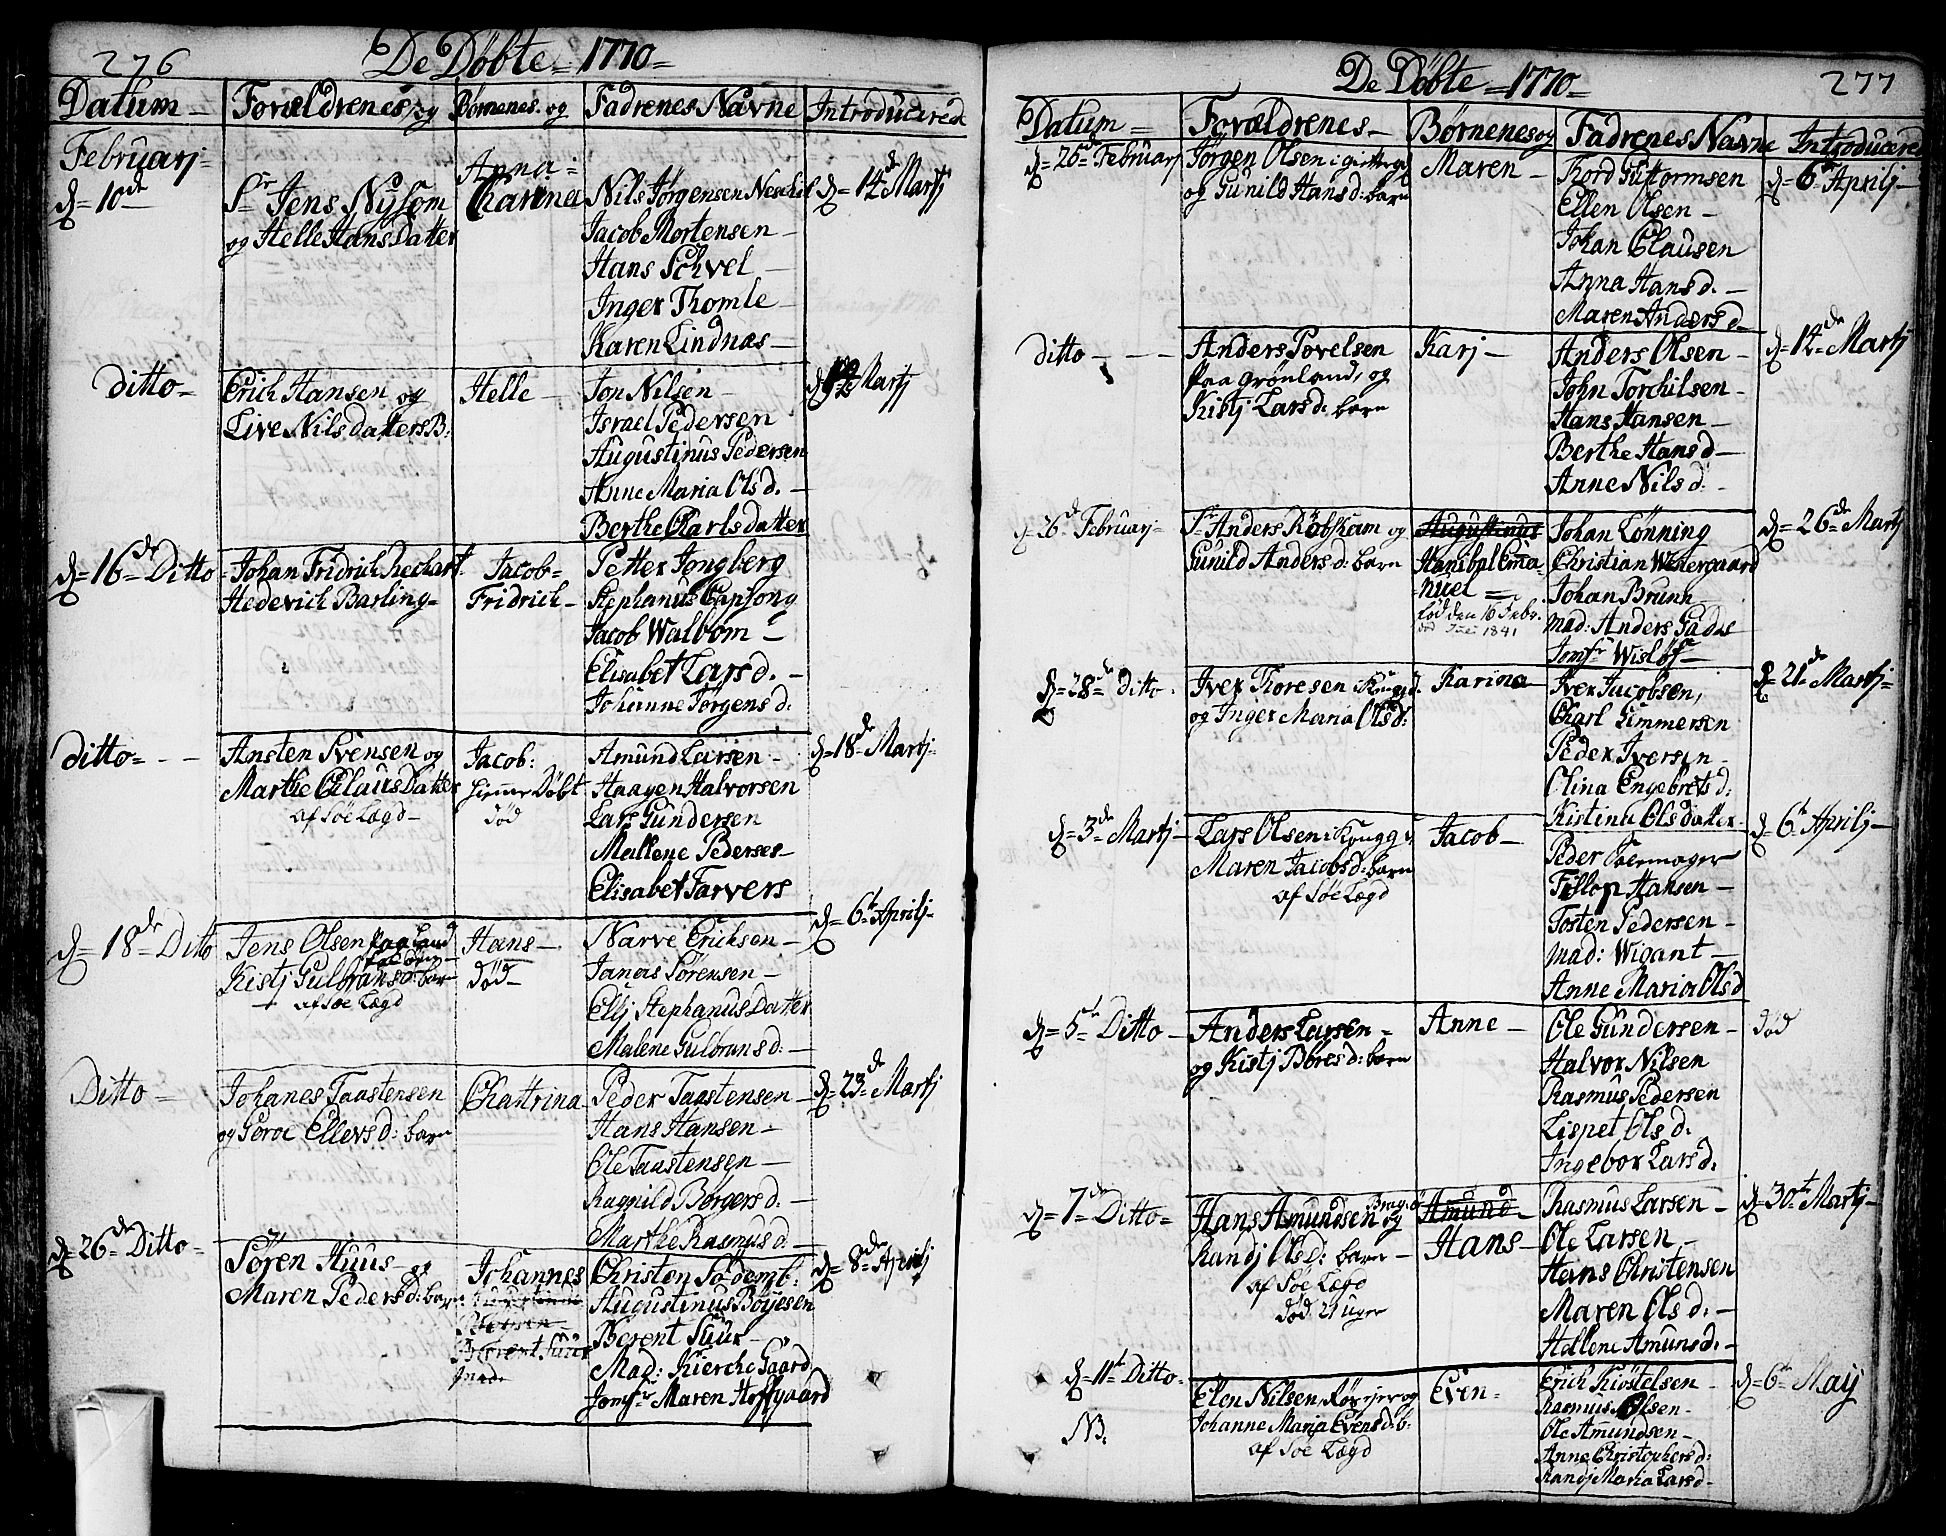 276
De Døbte = 1770 =
Datum - Forældrenes, og Børnenes og Fadrenes Navne Introducerede
Februarj =
d = 10de
Sr Jens Nysom
og Helle Hans Datter
Anna =
Charina
Nils Jørgensen Neschil
Jacob Mortensen -
Hans Schvel -
Inger Thomle -
Karen Lindnæs -
d = 14de Martj
ditto =
Erich Hansen og
Live Nils datters B:
Helle -
Jon Nilsen -
Israel Pedersen
Augustinus Pedersen
Anne Maria Ols d. -
Berthe Charlsdatter
Martj
d = 16de Ditto
Johan Fridrich Rechart
Hederich Barling -
Jacob =
Fridrich -
Petter Jongberg
Stephanus Capsong
Jacob Walbom -
Elisabet Lars d. -
Johanne Jørgens d.
ditto = - -
Ansten Svensen og
Marthe Claus Datter
af Søe Lægd -
Jacob:
hiemme Døbt
død
Amund Larsen -
Haagen Halvorsen
Lars Gundersen
Mallene Peders
Elisabet Farvers
d = 18de Martj -
d = 18de Ditto
Jens Olsen paa Land
Kistj Gulbransd: barn
af Søe Lægd
Hans -
død -
Narve Erichsen -
Janas Sørensen -
Ellj Stephanus Datter
Malene Gulbrans d: -
d = 6te Aprilj -
Ditto -
Johanes Taastensen
og Goroe Ellevs d: barn
Chattrina
Peder Taastensen -
Hans Hansen -
Ole Taastensen -
Ragnild Børgers d. -
Marthe Rasmus d. -
d = 23de Martj
d = 26de Ditto -
Søren Huus - og
Maren Peders d: barn
Johannes
Berent Suur
Christen Sodemb:
Augustinus Bøyesen
Berent Suur -
Mad: Kierche Gaard
Jomfr Maren Hoffgaard
d = 8de Aprilj
277
De Døbte = 1770 -
Datum = Forældrenes - Børnenes og Fadrenes Navne Introducered
d = 26de Februarj
Jørgen Olsen i
og Gunild Hans d: barn
Maren -
Thord Guttormsen
Ellen Olsen -
Johan Clausen
Anna Hans d. -
Maren Anders d -
d = 6te Aprilj -
ditto - - -
Anders Povelsen
paa Grønland, og
Kistj Lars d: barn
Karj -
Anders Olsen -
John Torchilsen -
Hans Hansen -
Berthe Hans d -
Anne Nils d: -
d = 14de Martj
d = 26de Februarj -
Sr Anders Røbscham og
Gunild Anders d: barn
Augustinus
Hanibal Ema-
nuel =
fød den 16 Febr.
død Juni 1841
Johan Lønning
Christian Westergaard
Johan Brunn -
Mad: Anders Gades
Jomfr Wisløf -
d = 26de Martj
d = 28de ditto -
Iver Thoresen
og Inger Maria Ols d:
Karina -
Iver Jacobsen,
Charl Gimmersen
Peder Iversen -
Olina Engebrets d:
Kistine Ols datter -
d = 21de Martj =
d = 3de Martj -
Lars Olsen i
Maren Jacobs d: barn
af Søe Lægd
Jacob -
Peder
Fillop Hansen -
Tosten Pedersen -
Mad: Wigant -
Anne Maria Ols d
d = 6te Aprilj -
d = 5te Ditto -
Anders Larsen -
og Kistj Børes d: barn
Anne -
Ole Gundersen -
Halvor Nilsen
Rasmus Pedersen
Lispet Ols d:
Ingebor Lars d.
død
d = 7de Ditto =
Hans Amundsen Bragn: og
Randj Ols d: barn -
af Søe Lægd
død. 21 uger
Amund
Hans -
Rasmus Larsen -
Ole Larsen -
Hans Christensen
Maren Ols d. -
Hellene Amuns d: -
d = 30te Martj -
d = 11te Ditto -
NB.
Elen Nilsen og
Johanne Maria Evens d: b:
af Søe Lægd
Even -
Erich Kiøstelsen -
Rasmus Olsen -
Ole Amundsen -
Anne Christophers d:
Randj Maria Lars d -
d = 6te Maij